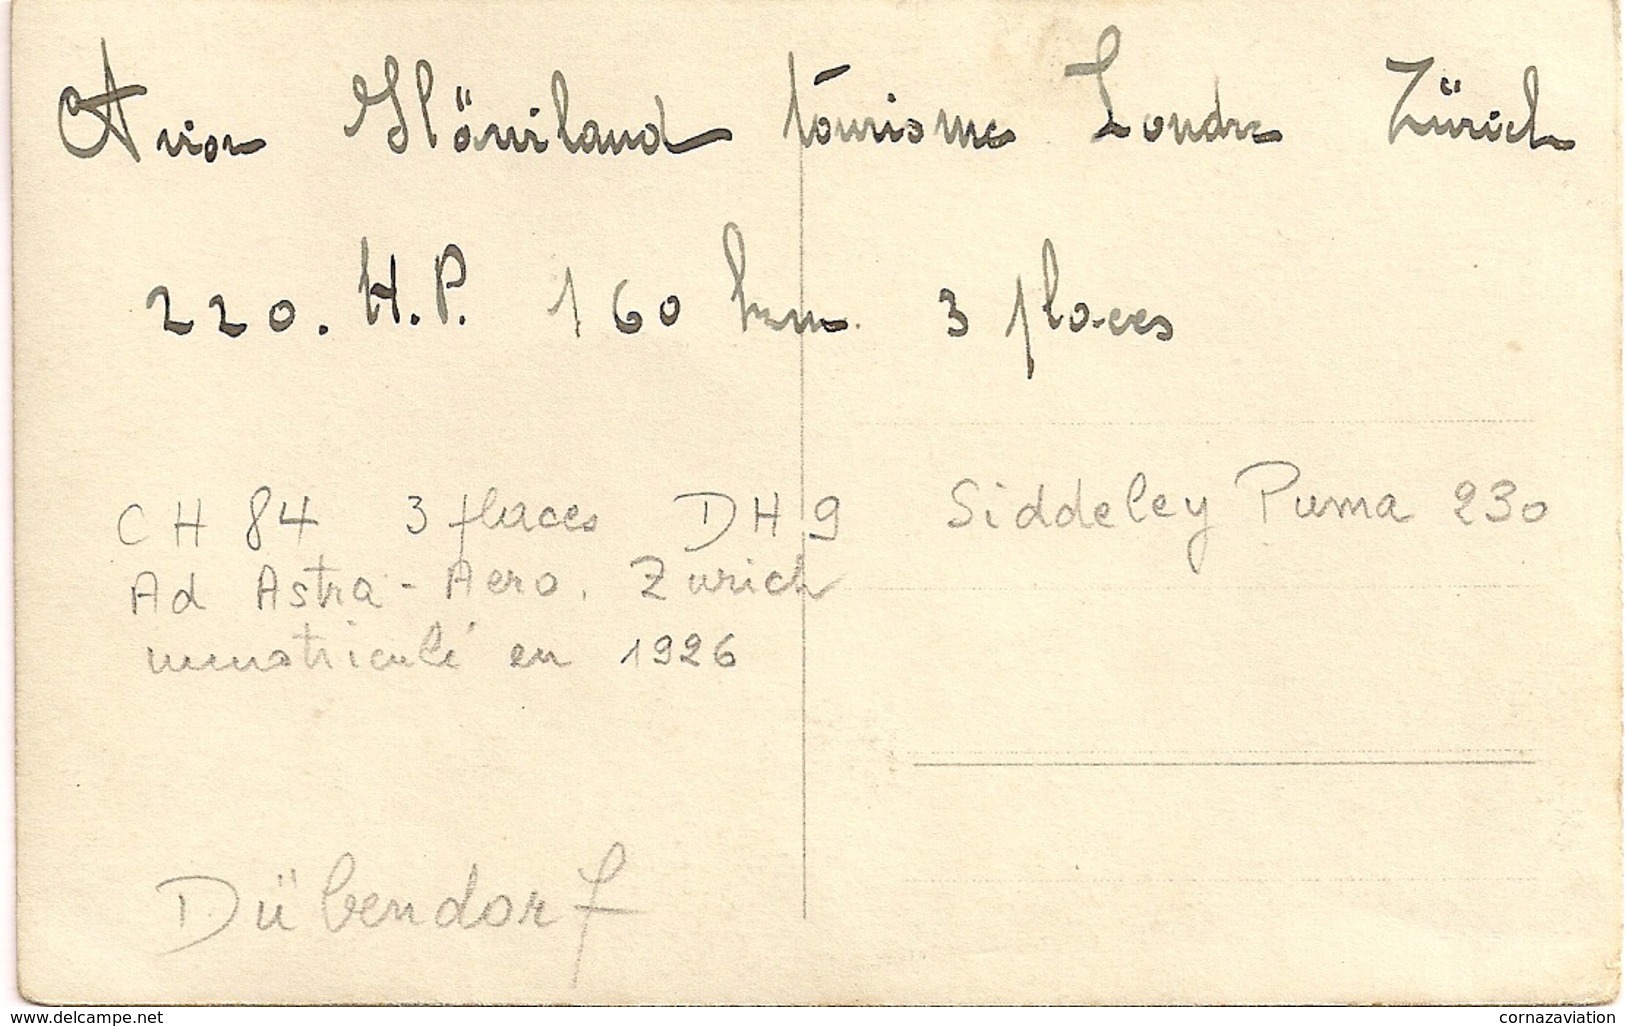 Avion Häviland tourisme Londre Zürich
220. H.P. 160 km. 3 places
CH 84 3 places DH 9 Siddeley Puma 230
Ad Astra-Aero. Zurich
immatriculé en 1926
Dübendorf
www.delcampe.net cornazaviation